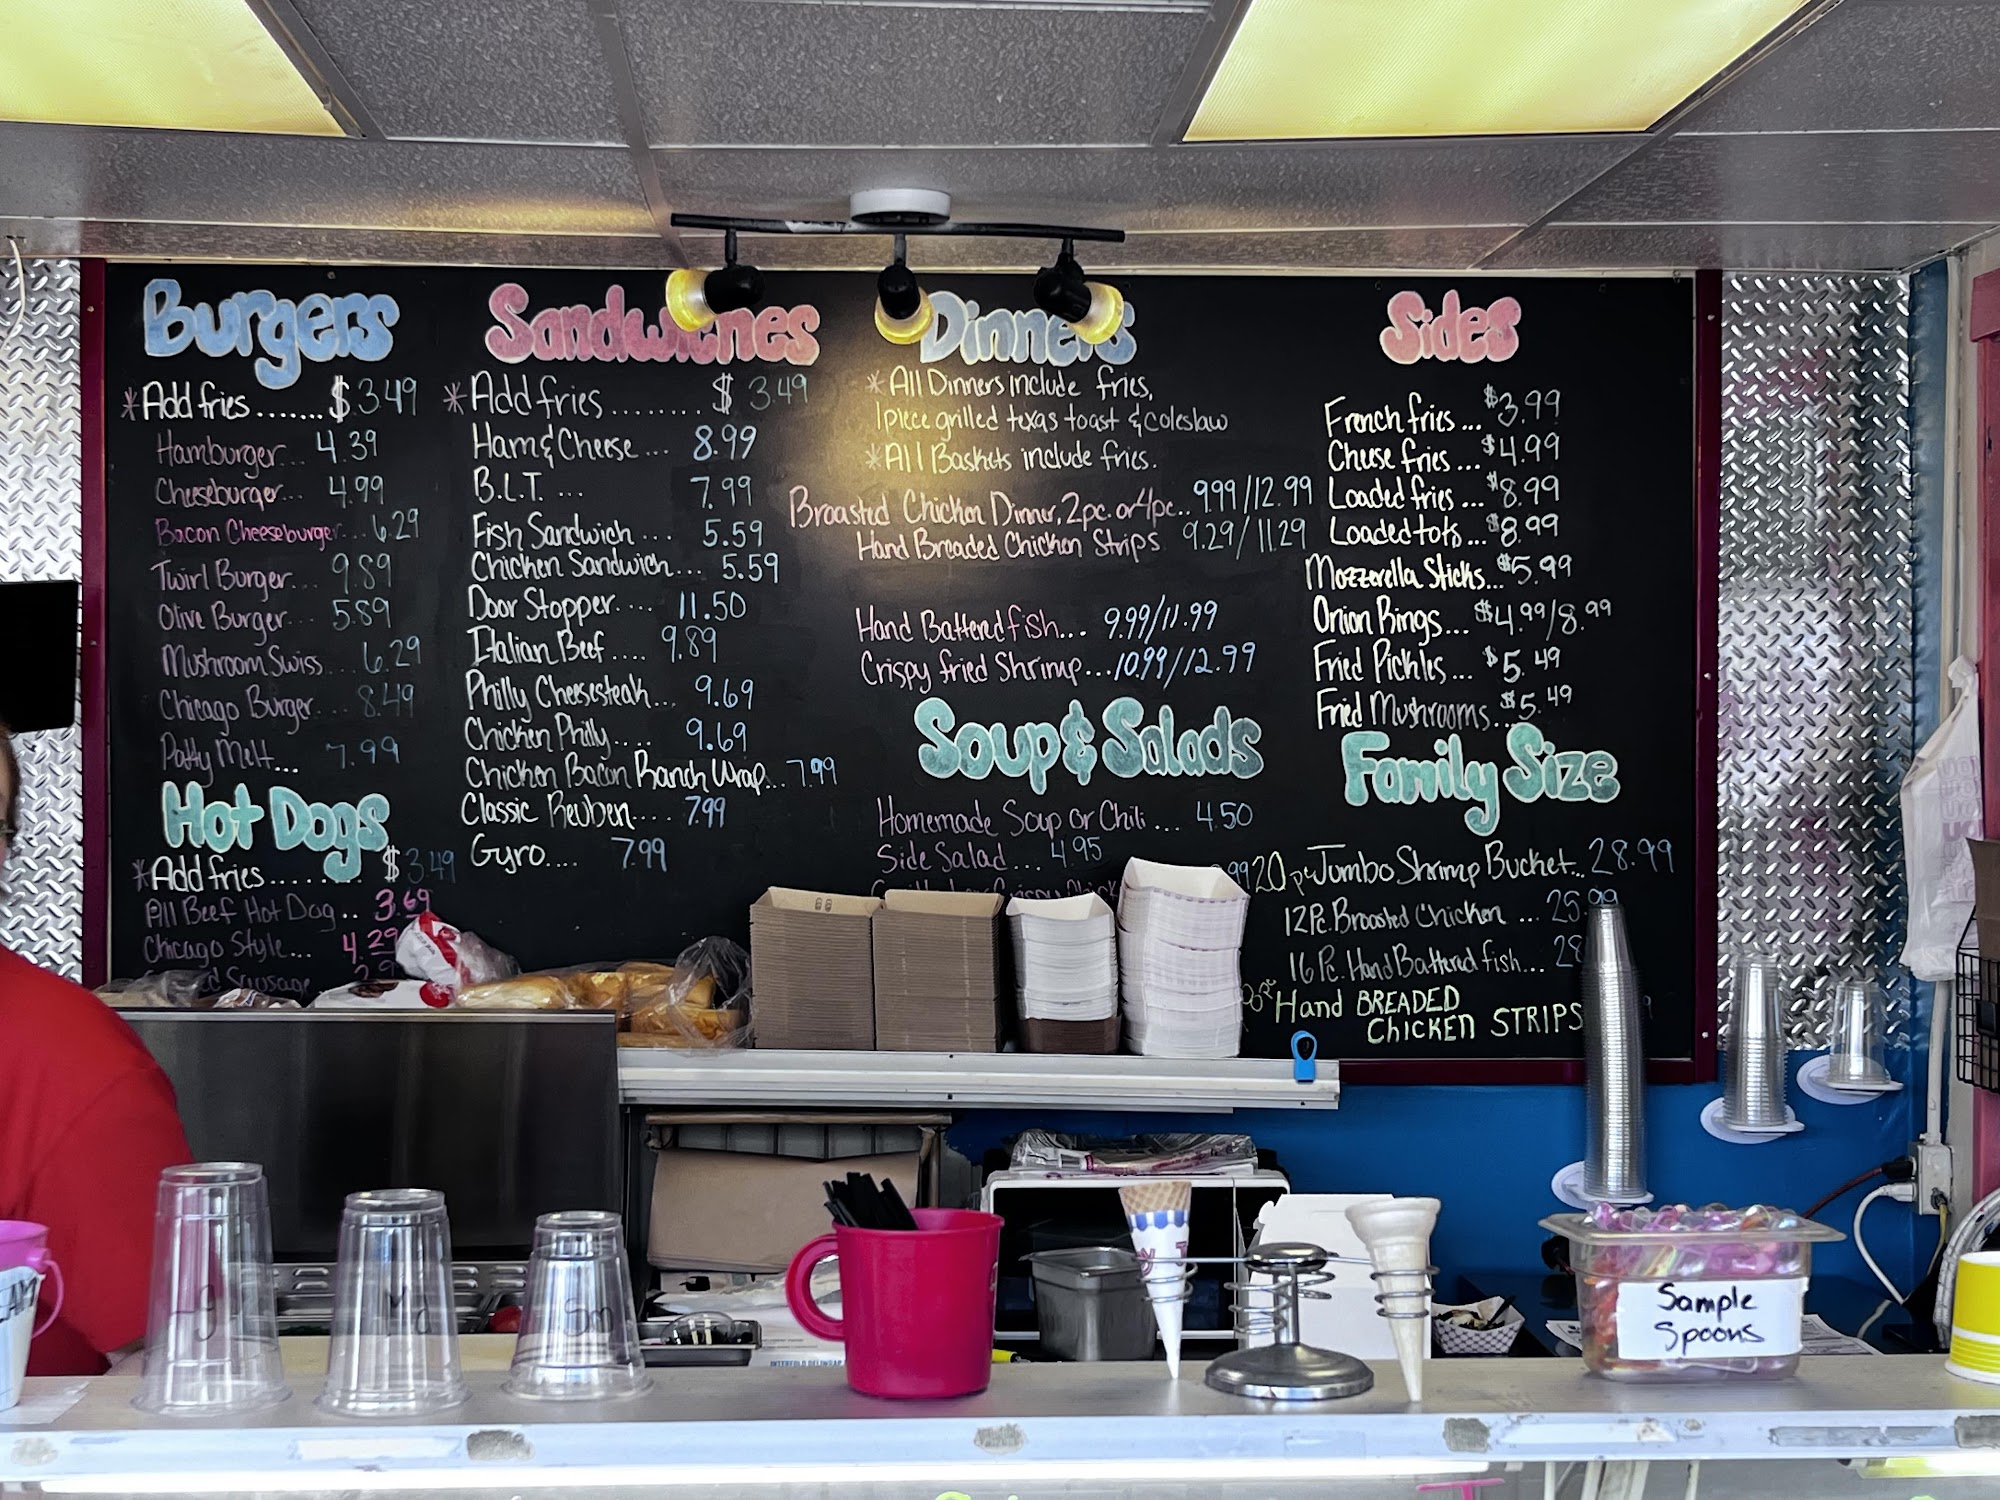 Burgers
*Add fries.......$3.49
Hamburger... 4.39
Cheeseburger... 4.99
Bacon Cheeseburger... 6.29
Twirl Burger... 9.89
Olive Burger... 5.89
Mushroom Swiss... 6.29
Chicago Burger... 8.49
Patty Melt... 7.99
Hot Dogs
*Add fries....... $3.49
All Beef Hot Dog.. 3.69
Chicago Style... 4.29
Sausage
Sandwiches
*Add fries........ $3.49
Ham & Cheese... 8.99
B.L.T. ... 7.99
Fish Sandwich.... 5.59
Chicken Sandwich... 5.59
Door Stopper.... 11.50
Italian Beef.... 9.89
Philly Cheesesteak... 9.69
Chicken Philly..... 9.69
Chicken Bacon Ranch Wrap... 7.99
Classic Reuben.... 7.99
Gyro.... 7.99
Dinners
*All Dinners include fries,
1 piece grilled texas toast & coleslaw
*All Baskets include fries.
Broasted Chicken Dinner, 2pc. or 4pc... 9.99/12.99
Hand Breaded Chicken Strips 9.29/11.29
Hand Battered fish... 9.99/11.99
Crispy fried Shrimp...10.99/12.99
Soup & Salads
Homemade Soup or Chili... 4.50
Side Salad... 4.95
Sides
French fries... $3.99
Cheese fries... $4.99
Loaded fries... $8.99
Loaded tots... $8.99
Mozzarella Sticks...$5.99
Onion Rings... $4.99/8.99
Fried Pickles... $5.49
Fried Mushrooms...$5.49
Family Size
20 pc Jumbo Shrimp Bucket... 28.99
12 Pc. Broasted Chicken ... 25.99
16 Pc. Hand Battered fish... 28
Hand BREADED
CHICKEN STRIPS
Lg
Md
Sm
Sample
Spoons